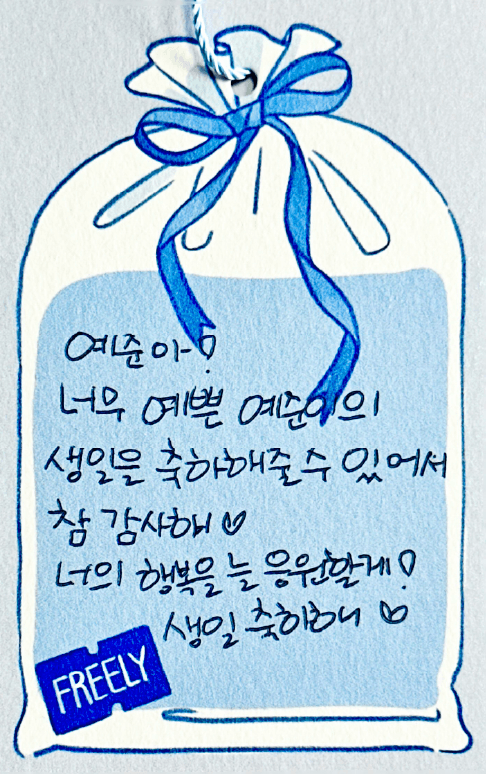 예준아♡
너무 예쁜 예준이의
생일을 축하해줄 수 있어서
참 감사해♡
너의 행복을 늘 응원할게!
생일 축하해 ♡
FREELY